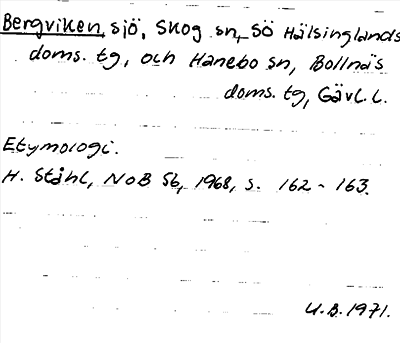 Bergviken, sjö, Skog sn, Sö Hälsinglands
doms. tg, och Hanebo sn, Bollnäs
doms. tg, Gävl. l.
Etymologi.
H. Ståhl, NoB 56, 1968, s. 162-163.
U.B. 1971.